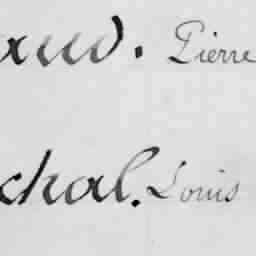 aud. Pierre
chal. Louis